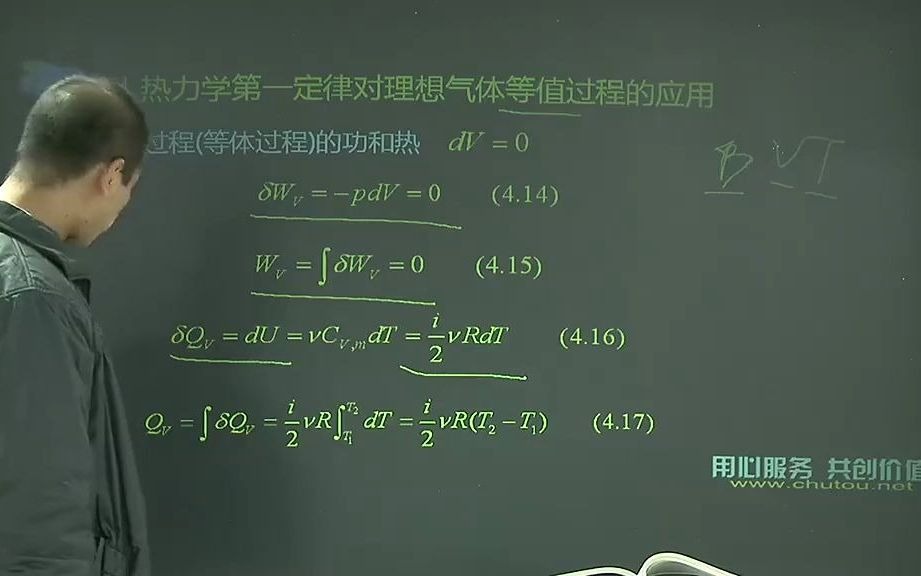 热力学第一定律对理想气体等值过程的应用
过程(等体过程)的功和热 dV = 0
δW_V = −pdV = 0 (4.14)
W_V = ∫δW_V = 0 (4.15)
δQ_V = dU = νC_{V,m}dT = \frac{i}{2}νRdT (4.16)
Q_V = ∫δQ_V = \frac{i}{2}νR∫_{T_1}^{T_2}dT = \frac{i}{2}νR(T_2−T_1) (4.17)
VT
用心服务 共创价值
www.chutou.net